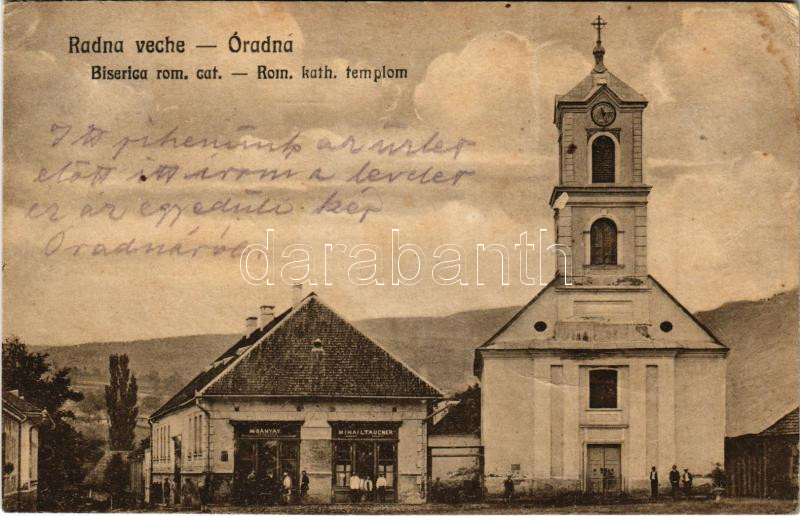 Radna veche — Óradna
Biserica rom. cat. — Rom. kath. templom
Itt pihenünk az üzlet
előtt itt irom a levelet
ez az egyedüli kép
Óradnáról.
darabanth
MIHAIL TAUCHER